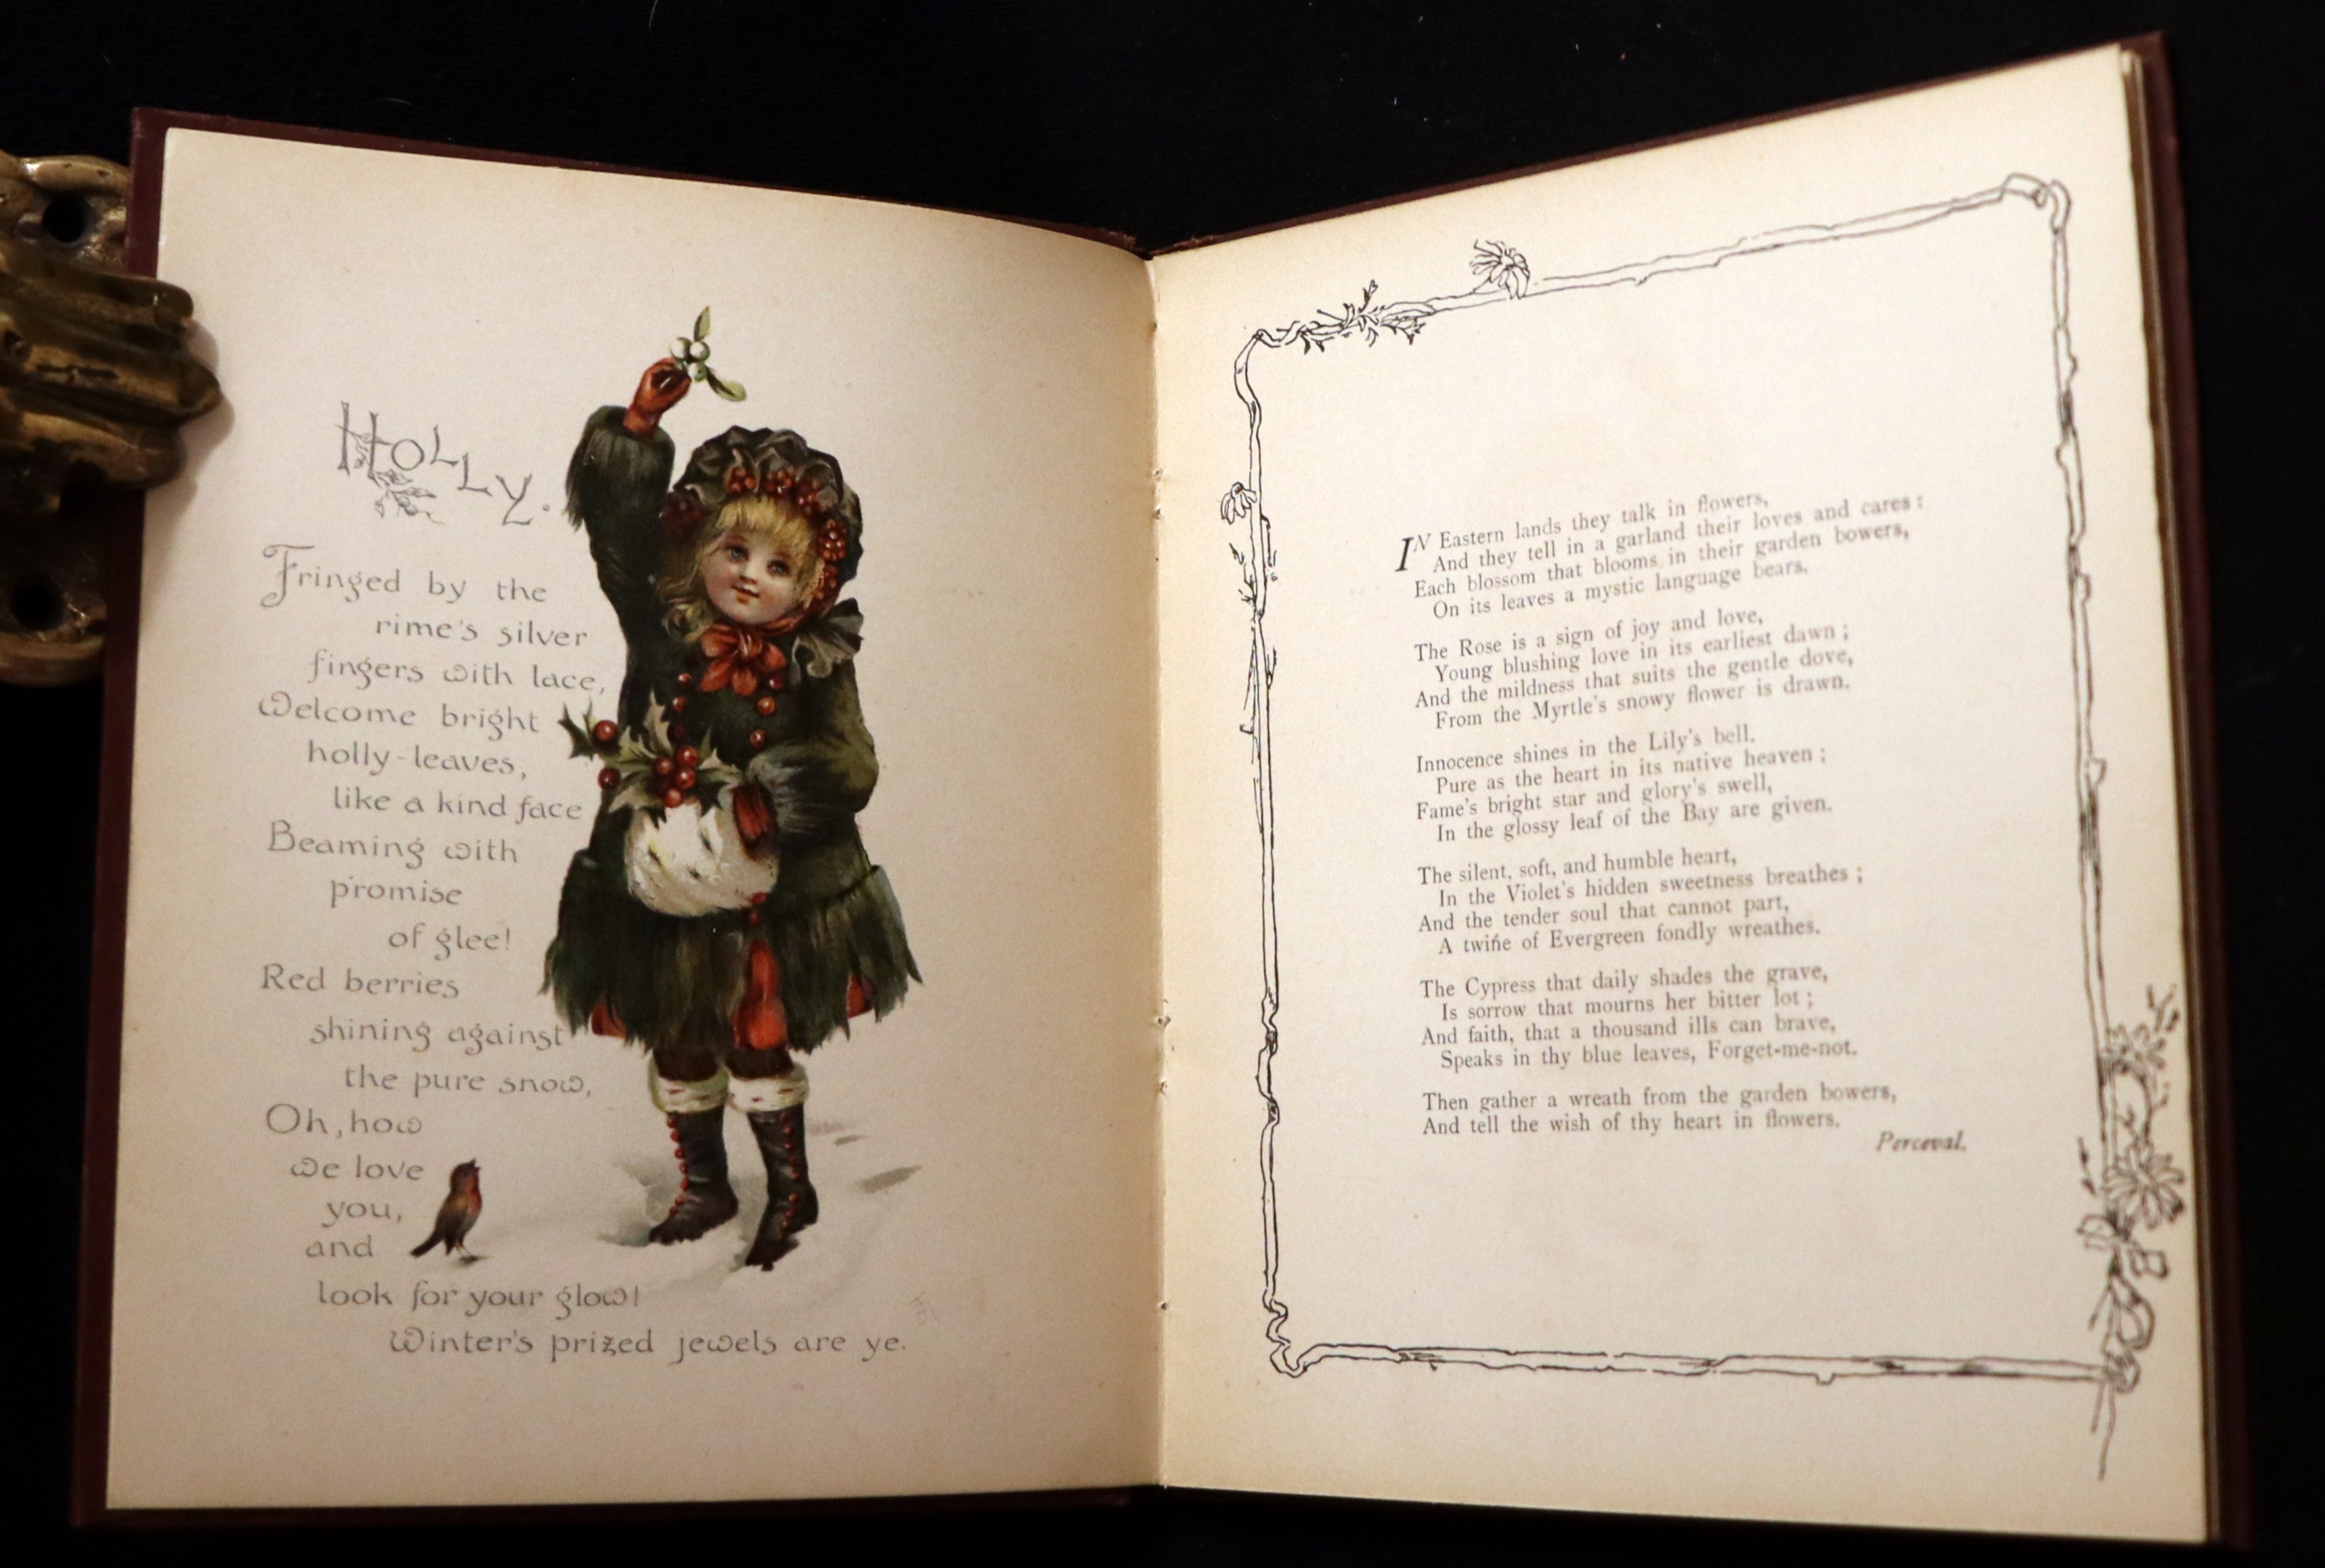 HOLLY.
Fringed by the
rime's silver
fingers with lace,
Welcome bright
holly-leaves,
like a kind face
Beaming with
promise
of glee!
Red berries
shining against
the pure snow,
Oh, how
we love
you,
and
look for your glow!
Winter's prized jewels are ye.
IN Eastern lands they talk in flowers,
And they tell in a garland their loves and cares:
Each blossom that blooms in their garden bowers,
On its leaves a mystic language bears.
The Rose is a sign of joy and love,
Young blushing love in its earliest dawn;
And the mildness that suits the gentle dove,
From the Myrtle's snowy flower is drawn.
Innocence shines in the Lily's bell.
Pure as the heart in its native heaven;
Fame's bright star and glory's swell,
In the glossy leaf of the Bay are given.
The silent, soft, and humble heart,
In the Violet's hidden sweetness breathes;
And the tender soul that cannot part,
A twine of Evergreen fondly wreathes.
The Cypress that daily shades the grave,
Is sorrow that mourns her bitter lot;
And faith, that a thousand ills can brave,
Speaks in thy blue leaves, Forget-me-not.
Then gather a wreath from the garden bowers,
And tell the wish of thy heart in flowers.
Perceval.